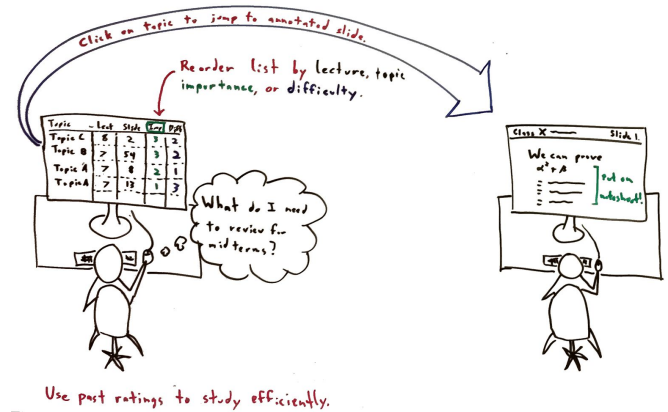 Click on topic to jump to annotated slide.
Reorder list by lecture, topic
importance, or difficulty.
Topic Lect Slide Imp Diff
Topic C 8 2 3 2
Topic B 7 54 3 2
Topic A 7 8 2 1
Topic A 7 13 1 3
What do I need
to review for
midterms?
Class X Slide 1.
We can prove
Put on
Use past ratings to study efficiently.